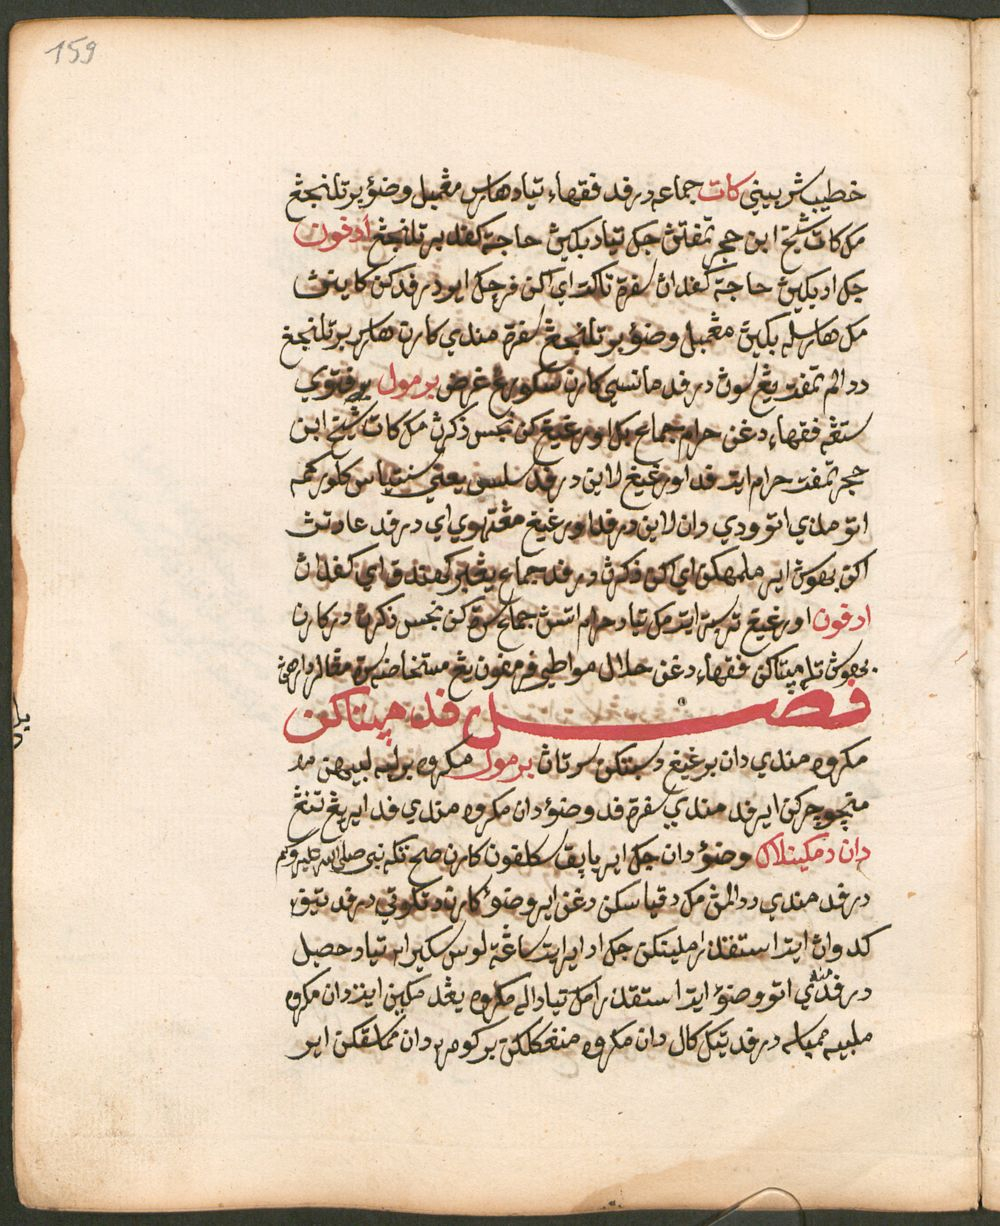 159
خطيب شربيني كات جماعه درفد فقهاء تياد هارس مڠمبل وضؤ برتلنجڠ
مك كات شيخ ابن حجر تتفتڽ جك تياد بڬيڽ حاجة كفد برتلنجڠ ادفون
جك اد بڬيڽ حاجة كفداڽ سفرة تاكت اي اكن فرچك اير درفد كن كاينڽ
مك هارسله بڬيڽ مڠمبل وضؤ برتلنجڠ سفرة مندي كارن هارس برتلنجڠ
ددالم تمفت يڠ سوڽ درفد مانسي كارن سكورڠ غرض برمول برفتوي
ستڠه فقهاء دڠن حرام جماع بڬ اورڠيڠ كن نجس ذكرڽ مك كات شيخ ابن
حجر تتفت حرام ايت فد اورڠيڠ لاين درفد سلس يعني سنتياس كلور كمه
اتو مذي اتو ودي دان لاين درفد اورڠيڠ مڠتهوي اي درفد عادتڽ
اكن بهوڽ اير ملمهكن اي اكن ذكرڽ درفد جماع يڠ بركهندق اي كفداڽ
ادفون اورڠيڠ ترسبة ايت مك تياد حرام اتسڽ جماع سرة كن نجس ذكرڽ دركارن
بهوڽ تله مپتاكن فقهاء دڠن حلال مواطي فرمفون يڠ مستحاضه سرة مڠالر داره
فصل فد مپتاكن
مكروه مندي دان برڠيڠ دسبتكن سرتاڽ برمول مكروه برلبه لبيهن
منچوچركن اير فد مندي سفرة فد وضؤ دان مكروه مندي فد اير يڠ تنڠ
دان دمكينلاڬ وضؤ دان جك اير باپق سكلفون كارن صح تڬه نبي صلى الله عليه وسلم
درفد مندي ددالمڽ مك دقياسكن دڠن اير وضؤ كارن دتاكوتي درفد
كدواڽ ايت استقذر ملينكن جك اد اير ايت ساڠة لوس سكيرا٢ تياد حصل
درفد مندي اتو وضؤ ايت استقذر مك تيادله مكروه يڠ دمكين ايت دان مكروه
ملبيه درفد تيڬ كال دان مكروه منڠڬلكن بركومر دان ممسقكن اير